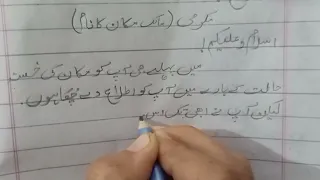 مکرمی (مالک مکان کا نام)
اسلام و علیکم!
میں پہلے بھی آپ کو مکان کی خستہ
حالت کے بارے میں آپ کو اطلاع دے چکا ہوں۔
لیکن آپ نے ابھی تک اس